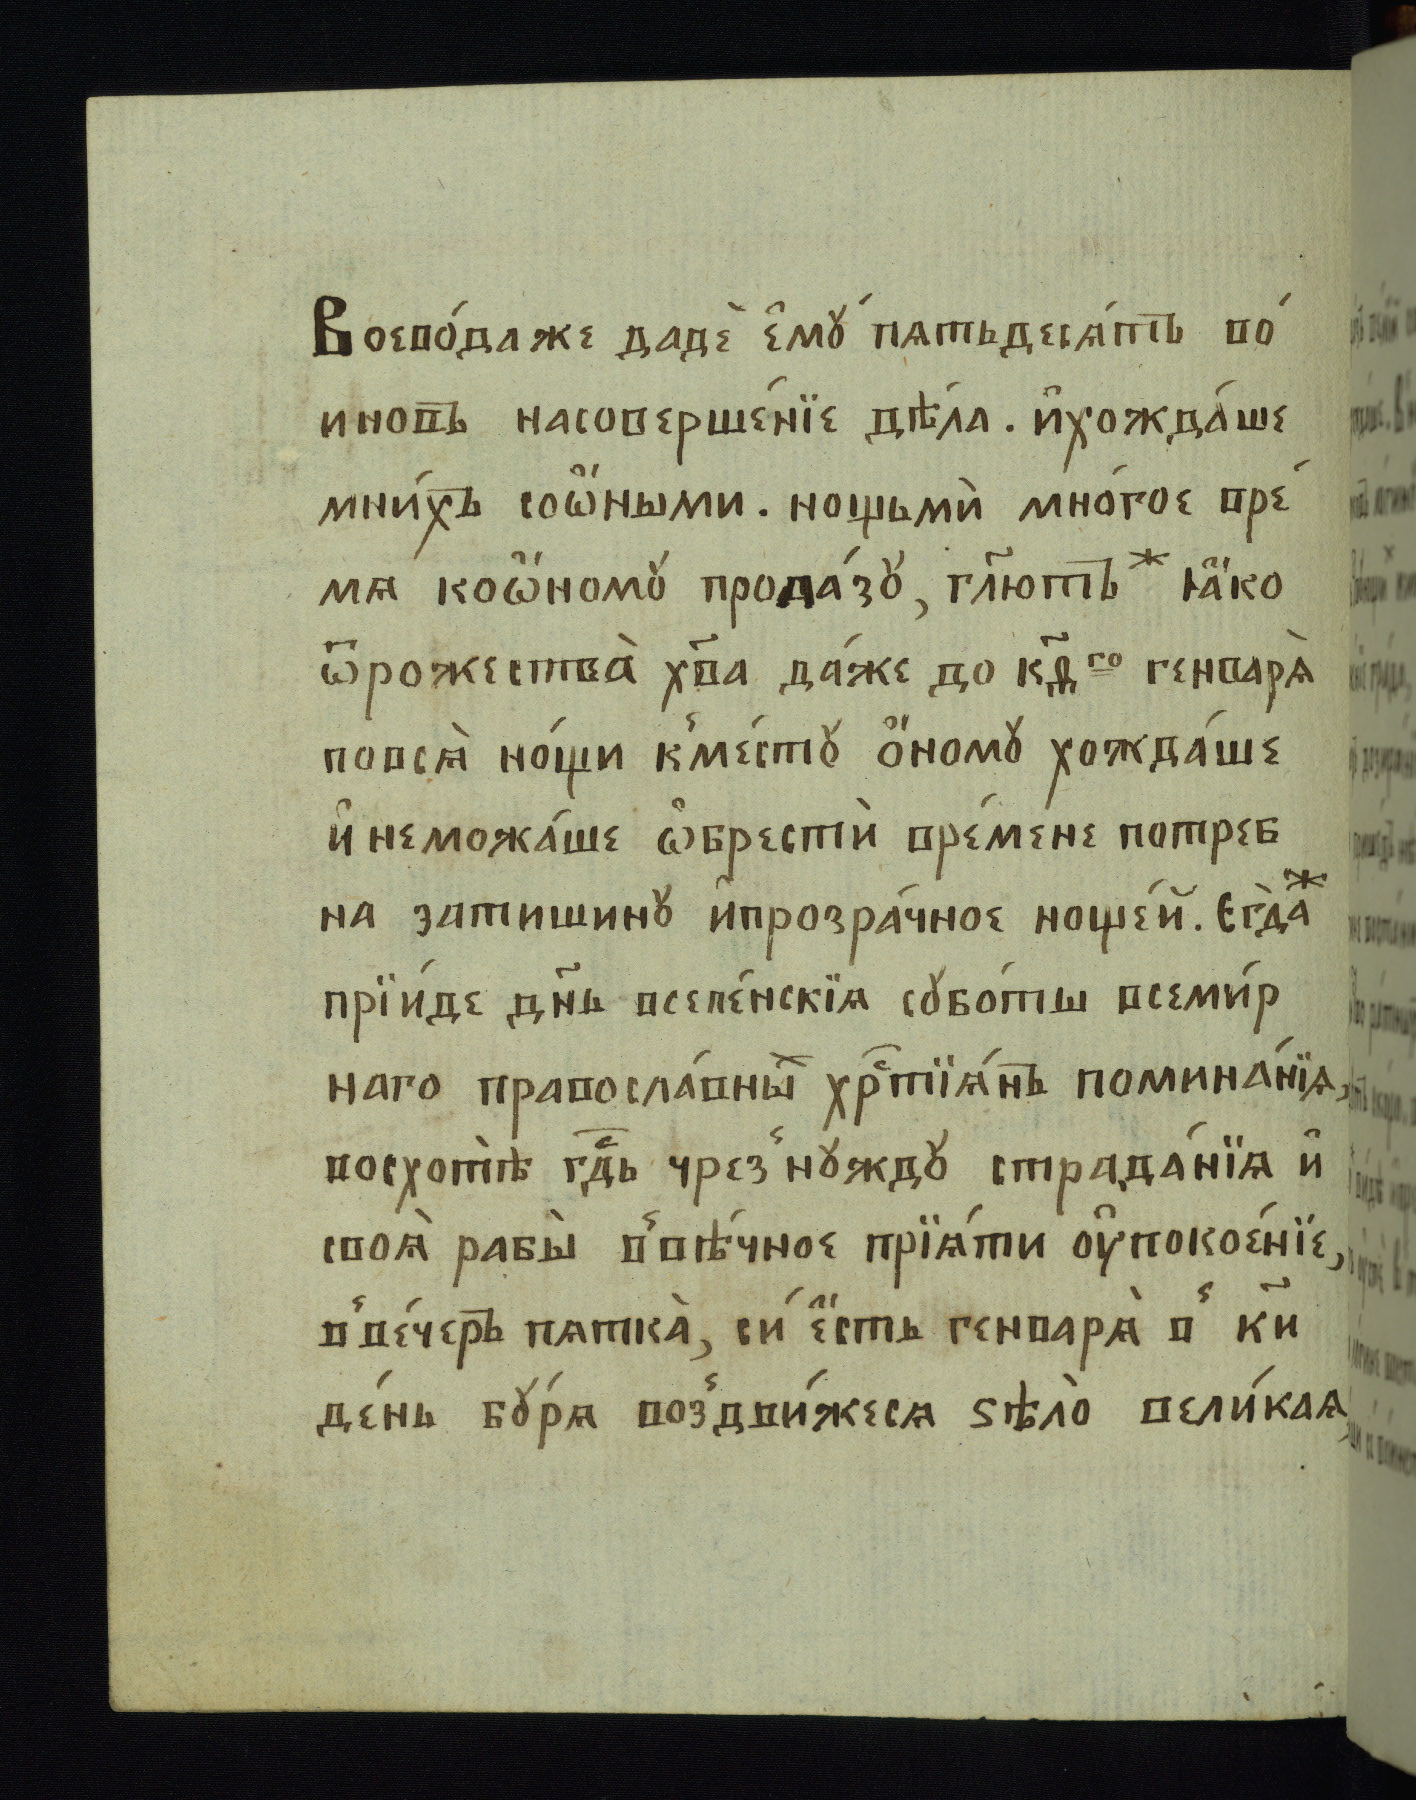 Воево́даже дадѐ є҆мꙋ́ пѧтьдесѧ́тъ во́
иновъ насоверше́нїе дѣ́ла. и҆хожда́ше
мни́хъ соѡ҆́ными. нощьмѝ мно́гое вре́
мѧ коѡ҆́номꙋ прола́зꙋ, гл҃ютъ* ꙗ҆́ко
ѿрожества̀ хв҃а да́же до кд҃го генварѧ̀
повсѧ̀ но́щи к̾ме́стꙋ ѻ҆́номꙋ хожда́ше
и҆ неможа́ше ѡ҆брестѝ вре́мене потреб
на затишинꙋ и҆прозра́чное ноще́й. Єгда̀*
прїи́де дн҃ь вселе́нскїѧ сꙋбо́ты всеми́р
наго правосла́вны́х хрⷭ҇тїѧ́нъ помина́нїѧ,
восхотѣ̀ гдⷭ҇ь чрез̾ нꙋждꙋ страда́нїѧ и҆
своѧ̀ рабы̀ в̾вѣ́чное прїѧ́ти оу҆покое́нїе,
в̾ве́черъ пѧтка̀, си́ є҆́сть генварѧ̀ в̾ ки҃
де́нь бꙋ́рѧ воз̾дви́жесѧ ѕѣлѡ̀ вели́каѧ,